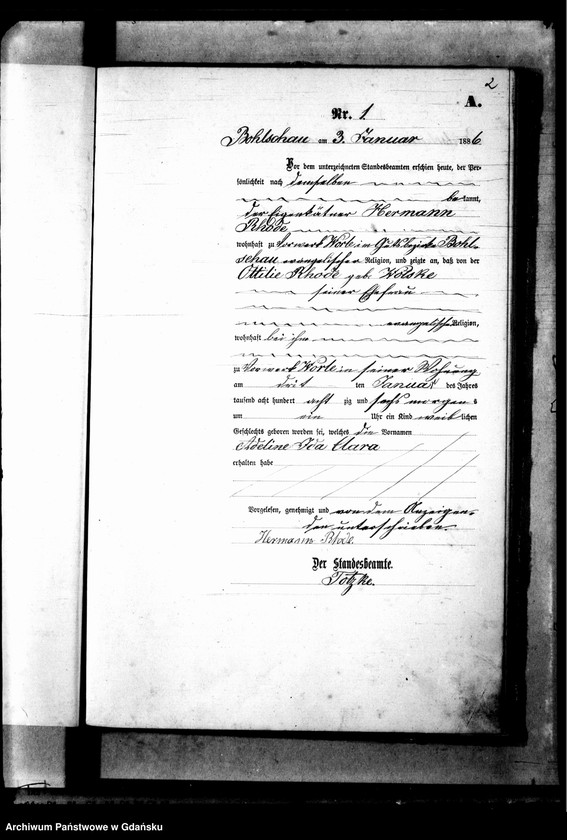 2
A.
Nr. 1
Bohlschau am 3. Januar 1886
Vor dem unterzeichneten Standesbeamten erschien heute, der Per-
sönlichkeit nach demselben
bekannt,
der Eigenkätner Hermann
Rhode
wohnhaft zu Vorwerk Worle im Gutsbezirk Bohl-
schau evangelischer Religion, und zeigte an, daß von der
Ottilie Rhode geb. Wolske
seiner Ehefrau
evangelischer Religion,
wohnhaft bei ihm
zu Vorwerk Worle in seiner Wohnung
am drit ten Januar des Jahres
tausend acht hundert acht zig und sechs morgens
um ein Uhr ein Kind weiblichen
Geschlechts geboren worden sei, welches die Vornamen
Adeline Ida Clara
erhalten habe
Vorgelesen, genehmigt und von dem Anzeigen-
den unterschrieben.
Hermann Rhode.
Der Standesbeamte.
Totzke.
Archiwum Państwowe w Gdańsku